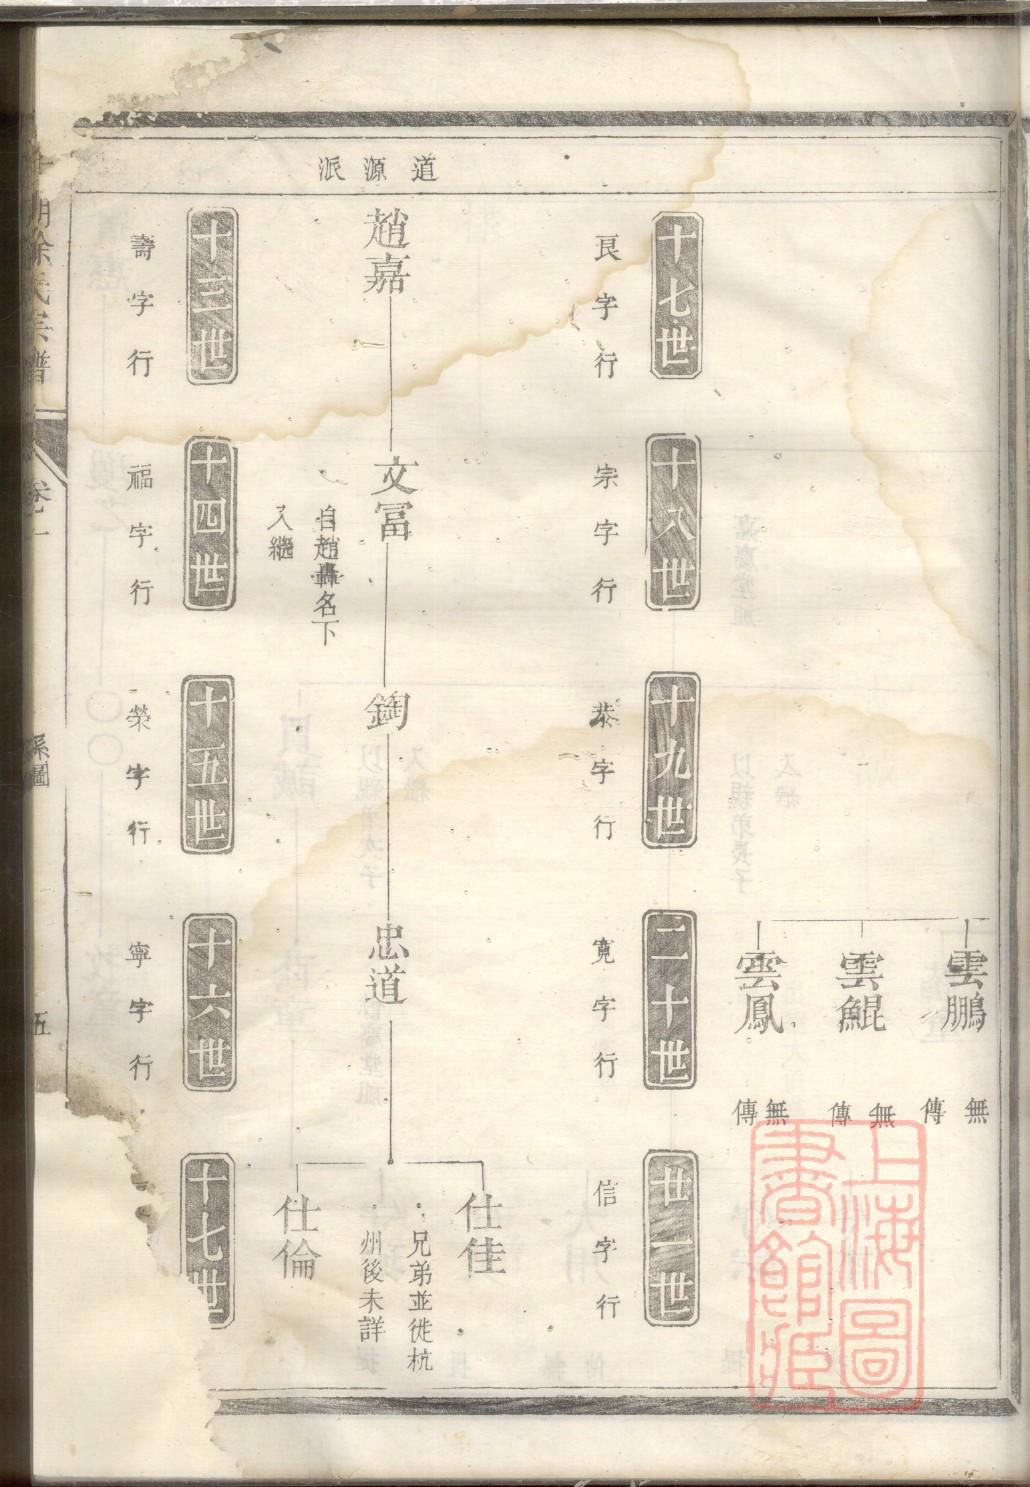 道源派
雲鵬
無傳
雲鯤
無傳
雲鳳
無傳
十七世
良字行
十八世
宗字行
十九世
恭字行
二十世
寬字行
廿一世
信字行
趙嘉
文冨
自趙轟名下
入繼
錭
忠道
仕佳
兄弟並徙杭
州後未詳
仕倫
十三世
壽字行
十四世
福字行
十五世
榮字行
十六世
寧字行
十七世
徐氏宗譜
卷一
系圖
五
上海圖書館藏